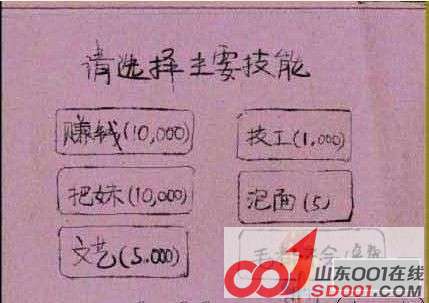 请选择主要技能
赚钱(10,000) 技工(1,000)
把妹(10,000) 泡面(5)
文艺(5.000)
山东001在线
SD001.COM